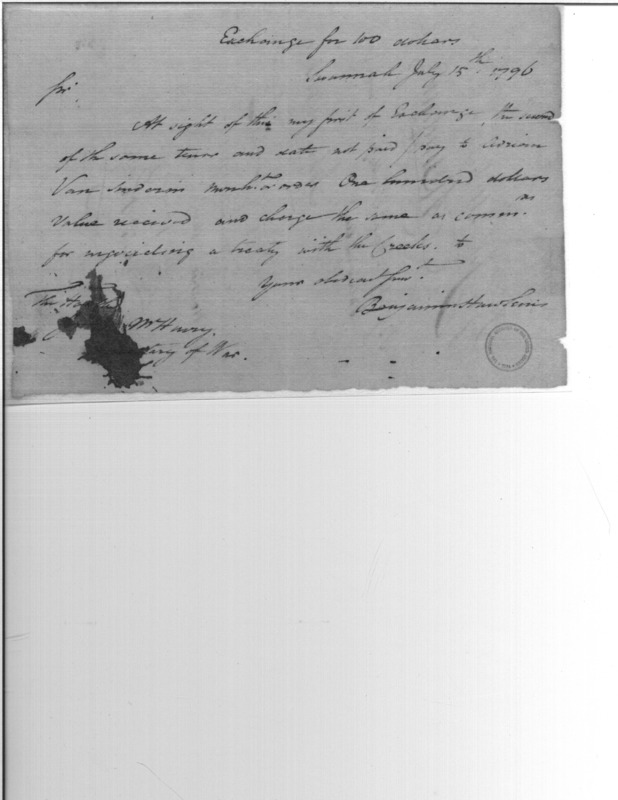 Exchange for 100 dollars
Savannah July 15th. 1796
Sir.
At sight of this my first of Exchange, the second
of the same tenor and date not paid pay to Adrian
Van month. or order One hundred dollars
value received and charge the same as commr.
for negociating a treaty with the Creeks. to
as
Your obedient Servt.
Benjamin Hawkins
The
McHenry.
tary of War.